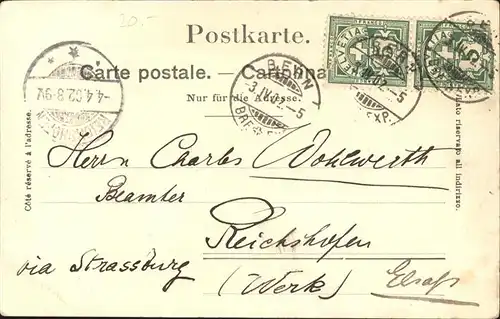 20.-
Postkarte.
Carte postale. — Cartolina
Nur für die Adresse.
HELVETIA
BERN
3.IV.02. -5
BRF. EXP.
-4.4.02.8-9V.
Côté réservé à l'adresse.
lato riservato all indirizzo.
Herrn Charles Wohlwerth
Beamter
Reichshofen
via Strassburg
(Werk) Elsaß